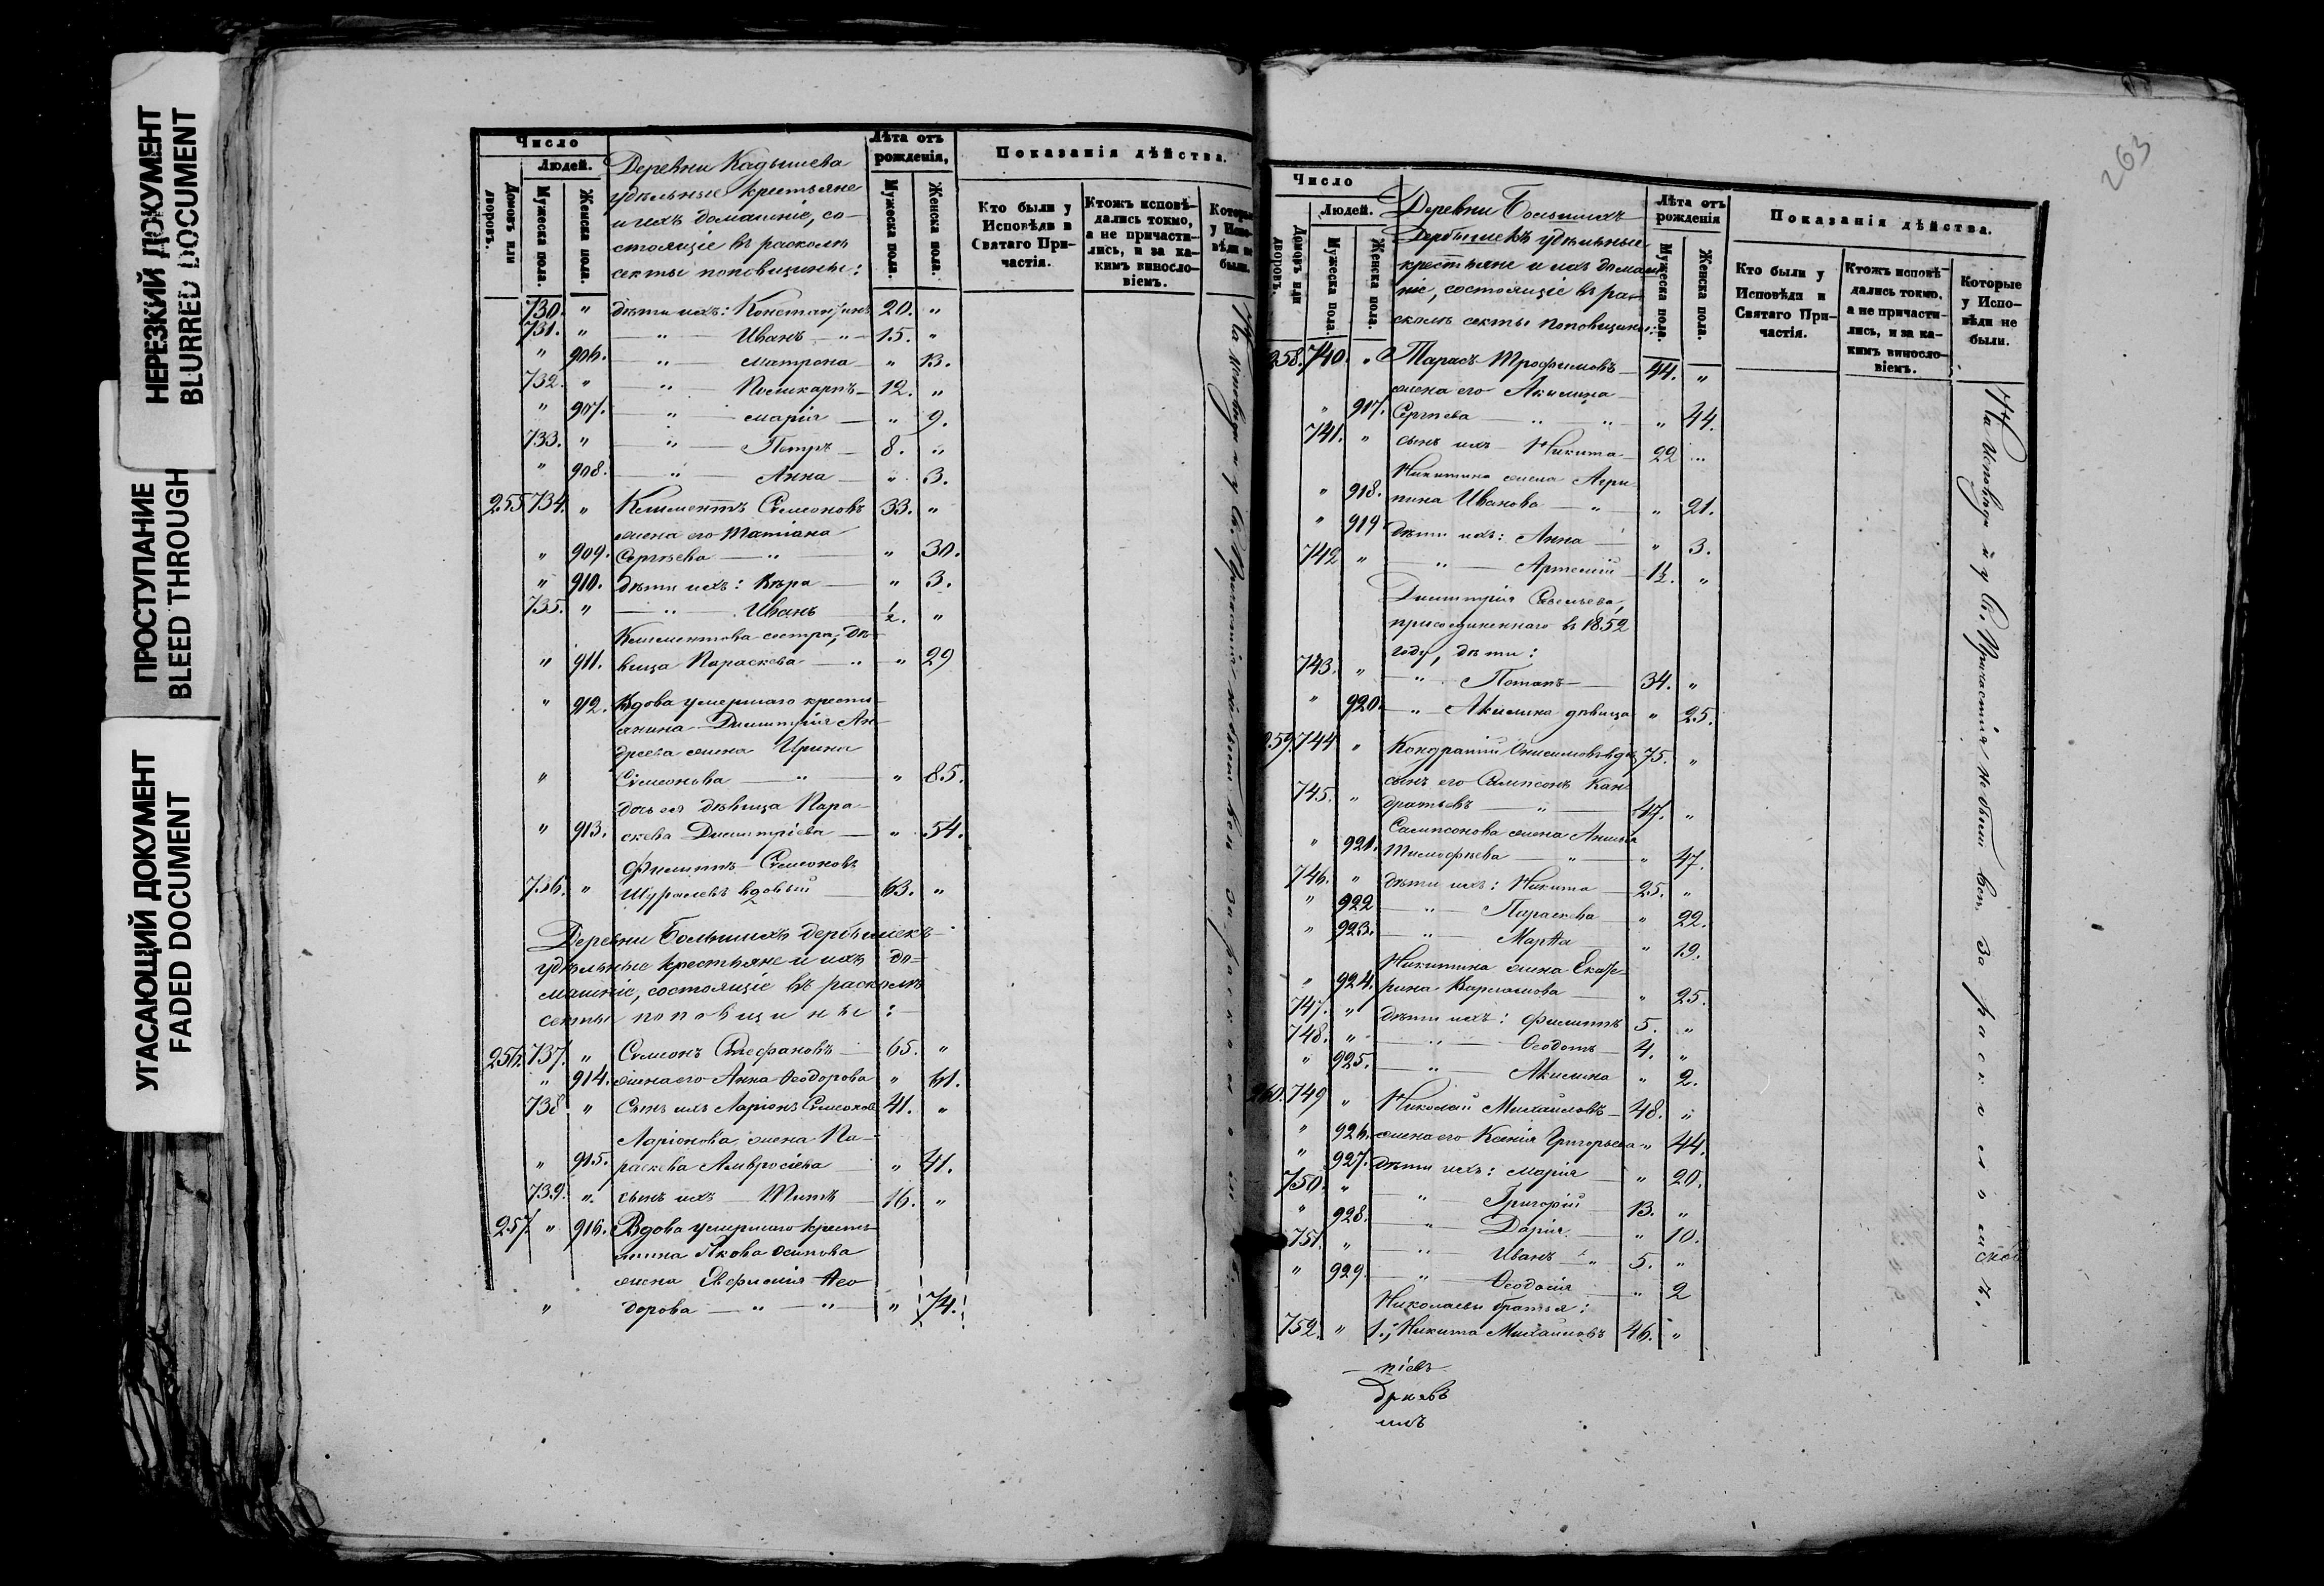 НЕРЕЗКИЙ ДОКУМЕНТ
BLURRED DOCUMENT
ПРОСТУПАНИЕ
BLEED THROUGH
УГАСАЮЩИЙ ДОКУМЕНТ
FADED DOCUMENT
Число
Людей.
Домовъ или дворовъ.
Мужеска пола.
Женска пола.
Деревни Кадышева
удѣльные крестьяне
и ихъ домашніе, со-
стоящіе въ расколѣ
секты поповщины:
Лѣта отъ рожденія,
Мужеска пола.
Женска пола.
Показанія дѣйства.
Кто были у Исповѣди и Святаго При-частія.
Ктожъ исповѣ-дались токмо, а не причасти-лись, и за ка-кимъ виносло-віемъ.
Которые у Испо-вѣди не были.
730. " дѣти ихъ: Константинъ 20. "
731. " — " — Иванъ — " — 15. "
" 906. — " — Матрона — " 13.
732. " — " — Поликарпъ — 12. "
" 907. — " — Марія — " 9.
733. " — " — Петръ — 8. "
" 908. — " — Анна — " 3.
255 734. " Климентъ Симеоновъ 33. "
жена его Татіана
" 909. Сергѣева — " — " 30.
" 910. дѣти ихъ: Вѣра — " 3.
735. " — " — Иванъ — ½. "
Климентова сестра, дѣ-
" 911. вица Параскева — " — " 29
" 912. Вдова умершаго кресть-
янина Димитрія Ан-
дреева жена Ирина
" Симеонова — " — " 85.
дочь ея дѣвица Пара-
" 913. скева Димитріева — " 54.
Филиппъ Симеоновъ
736. " Шуралевъ вдовый — 63. "
Деревни Большихъ Дербышекъ
удѣльные крестьяне и ихъ до-
машніе, состоящіе въ расколѣ
секты поповщины:
256. 737. " Симеонъ Стефановъ — 65. "
" 914. жена его Анна Ѳеодорова " 61.
738. " Сынъ ихъ Ларіонъ Симеоновъ 41. "
Ларіонова жена Па-
" 915. раскева Амвросіева — " 41.
739. " сынъ ихъ — Титъ — 16. "
257. " 916. Вдова умершаго кресть-
янина Якова Осипова
жена Евфимія Ѳео-
" дорова — " — " — " 74.
На Исповѣди и у Св. Причастія не были всѣ за расколомъ.
263
Число
Людей.
Домовъ или дворовъ.
Мужеска пола.
Женска пола.
Деревни Большихъ
Дербышекъ удѣльные
крестьяне и ихъ домаш-
ніе, состоящіе въ ра-
сколѣ секты поповщины:
Лѣта отъ рожденія
Мужеска пола.
Женска пола.
Показанія дѣйства.
Кто были у Исповѣди и Святаго При-частія.
Ктожъ исповѣ-дались токмо, а не причасти-лись, и за ка-кимъ виносло-віемъ.
Которые у Испо-вѣди не были.
258. 740. " Тарасъ Трофимовъ — 44. "
жена его Акилина
" 917. Сергѣева — " — " — " 44.
741. " сынъ ихъ — Никита — 22 "
Никитина жена Агри-
" 918. пина Иванова — " — " 21.
" 919. дѣти ихъ: Анна — " 3.
742 " — " — Артемій — 1½. "
Димитрія Савельева,
присоединеннаго въ 1852
году, дѣти:
743. " — " — Потапъ — 34. "
" 920. — " — Акилина дѣвица " 25.
259. 744 " Кондратій Онисимовъ вдов. 75. "
сынъ его Сампсонъ Кон-
745. " дратьевъ — " — 47. "
Сампсонова жена Анисія
" 921. Тимофѣева — " — " 47.
746. " дѣти ихъ: Никита — 25. "
" 922 — " — Параскева — " 22.
" 923. — " — Марѳа — " 19.
Никитина жена Екате-
" 924. рина Варламова — " 25.
747. " дѣти ихъ: Филиппъ 5. "
748. " — " — Ѳеодотъ — 4. "
" 925. — " — Акилина " 2.
260. 749 " Николай Михайловъ — 48. "
" 926. жена его Ксенія Григорьева " 44.
" 927. дѣти ихъ: Марія — " 20.
750. " — " — Григорій — 13. "
" 928. — " — Дарія — " 10.
751. " — " — Иванъ — " 5. "
" 929. — " — Ѳеодосія — " 2
Николаевы братья:
752. " 1., Никита Михайловъ 46. "
На Исповѣди и у Св. Причастія не были всѣ за расколомъ.